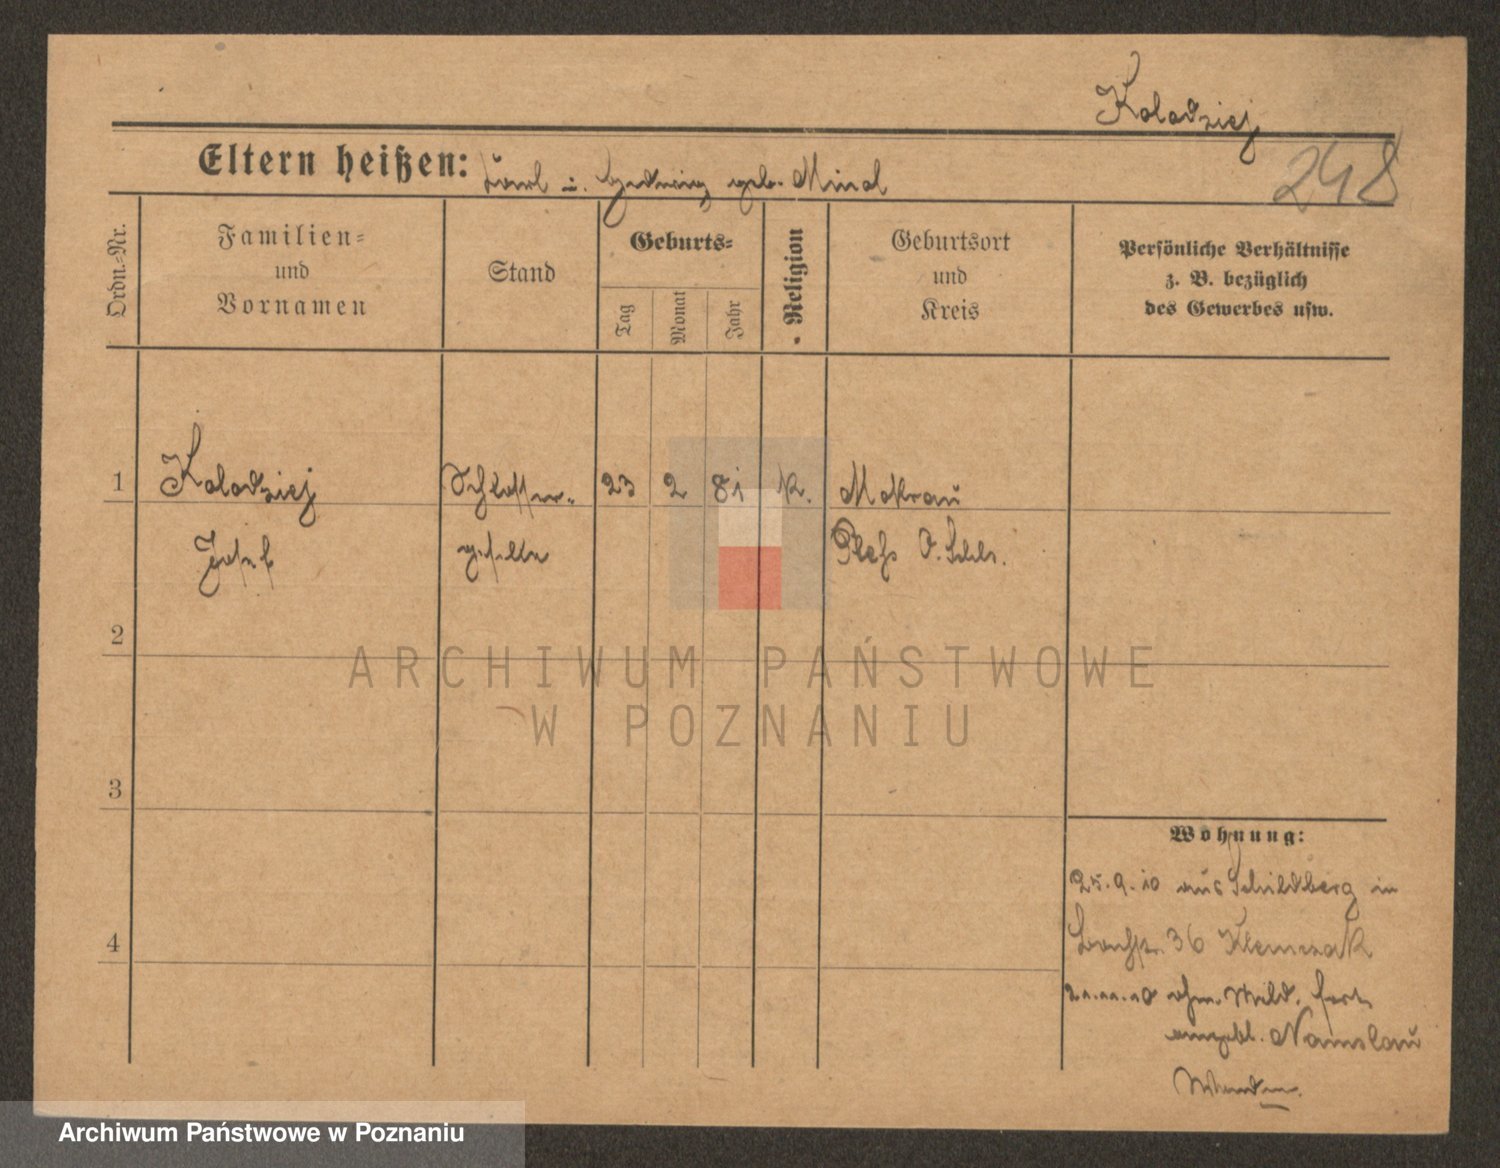 Kolodziej
248
Eltern heißen: Karl u. Hedwig geb. Minol
Ordn.-Nr.
Familien-
und
Vornamen
Stand
Geburts-
Tag
Monat
Jahr
Religion
Geburtsort
und
Kreis
Persönliche Verhältnisse
z. B. bezüglich
des Gewerbes usw.
1 Kolodziej Schlosser- 23 2 81 k. Mokrau
Josef geselle Pleß O. Schls.
2
3
4
Wohnung:
25.9.10 aus Schildberg in
36 Klemczak
21.11.10 ohne Meld. fort
angebl. Namslau
ARCHIWUM PAŃSTWOWE
W POZNANIU
Archiwum Państwowe w Poznaniu